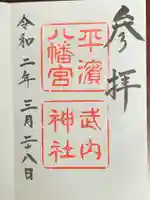 参拝
平濱
八幡宮
武内
神社
令和二年三月二十八日